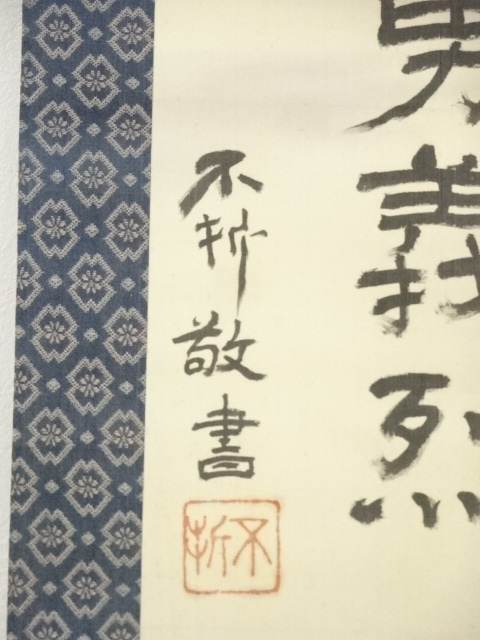 勇義烈
不折敬書
不折